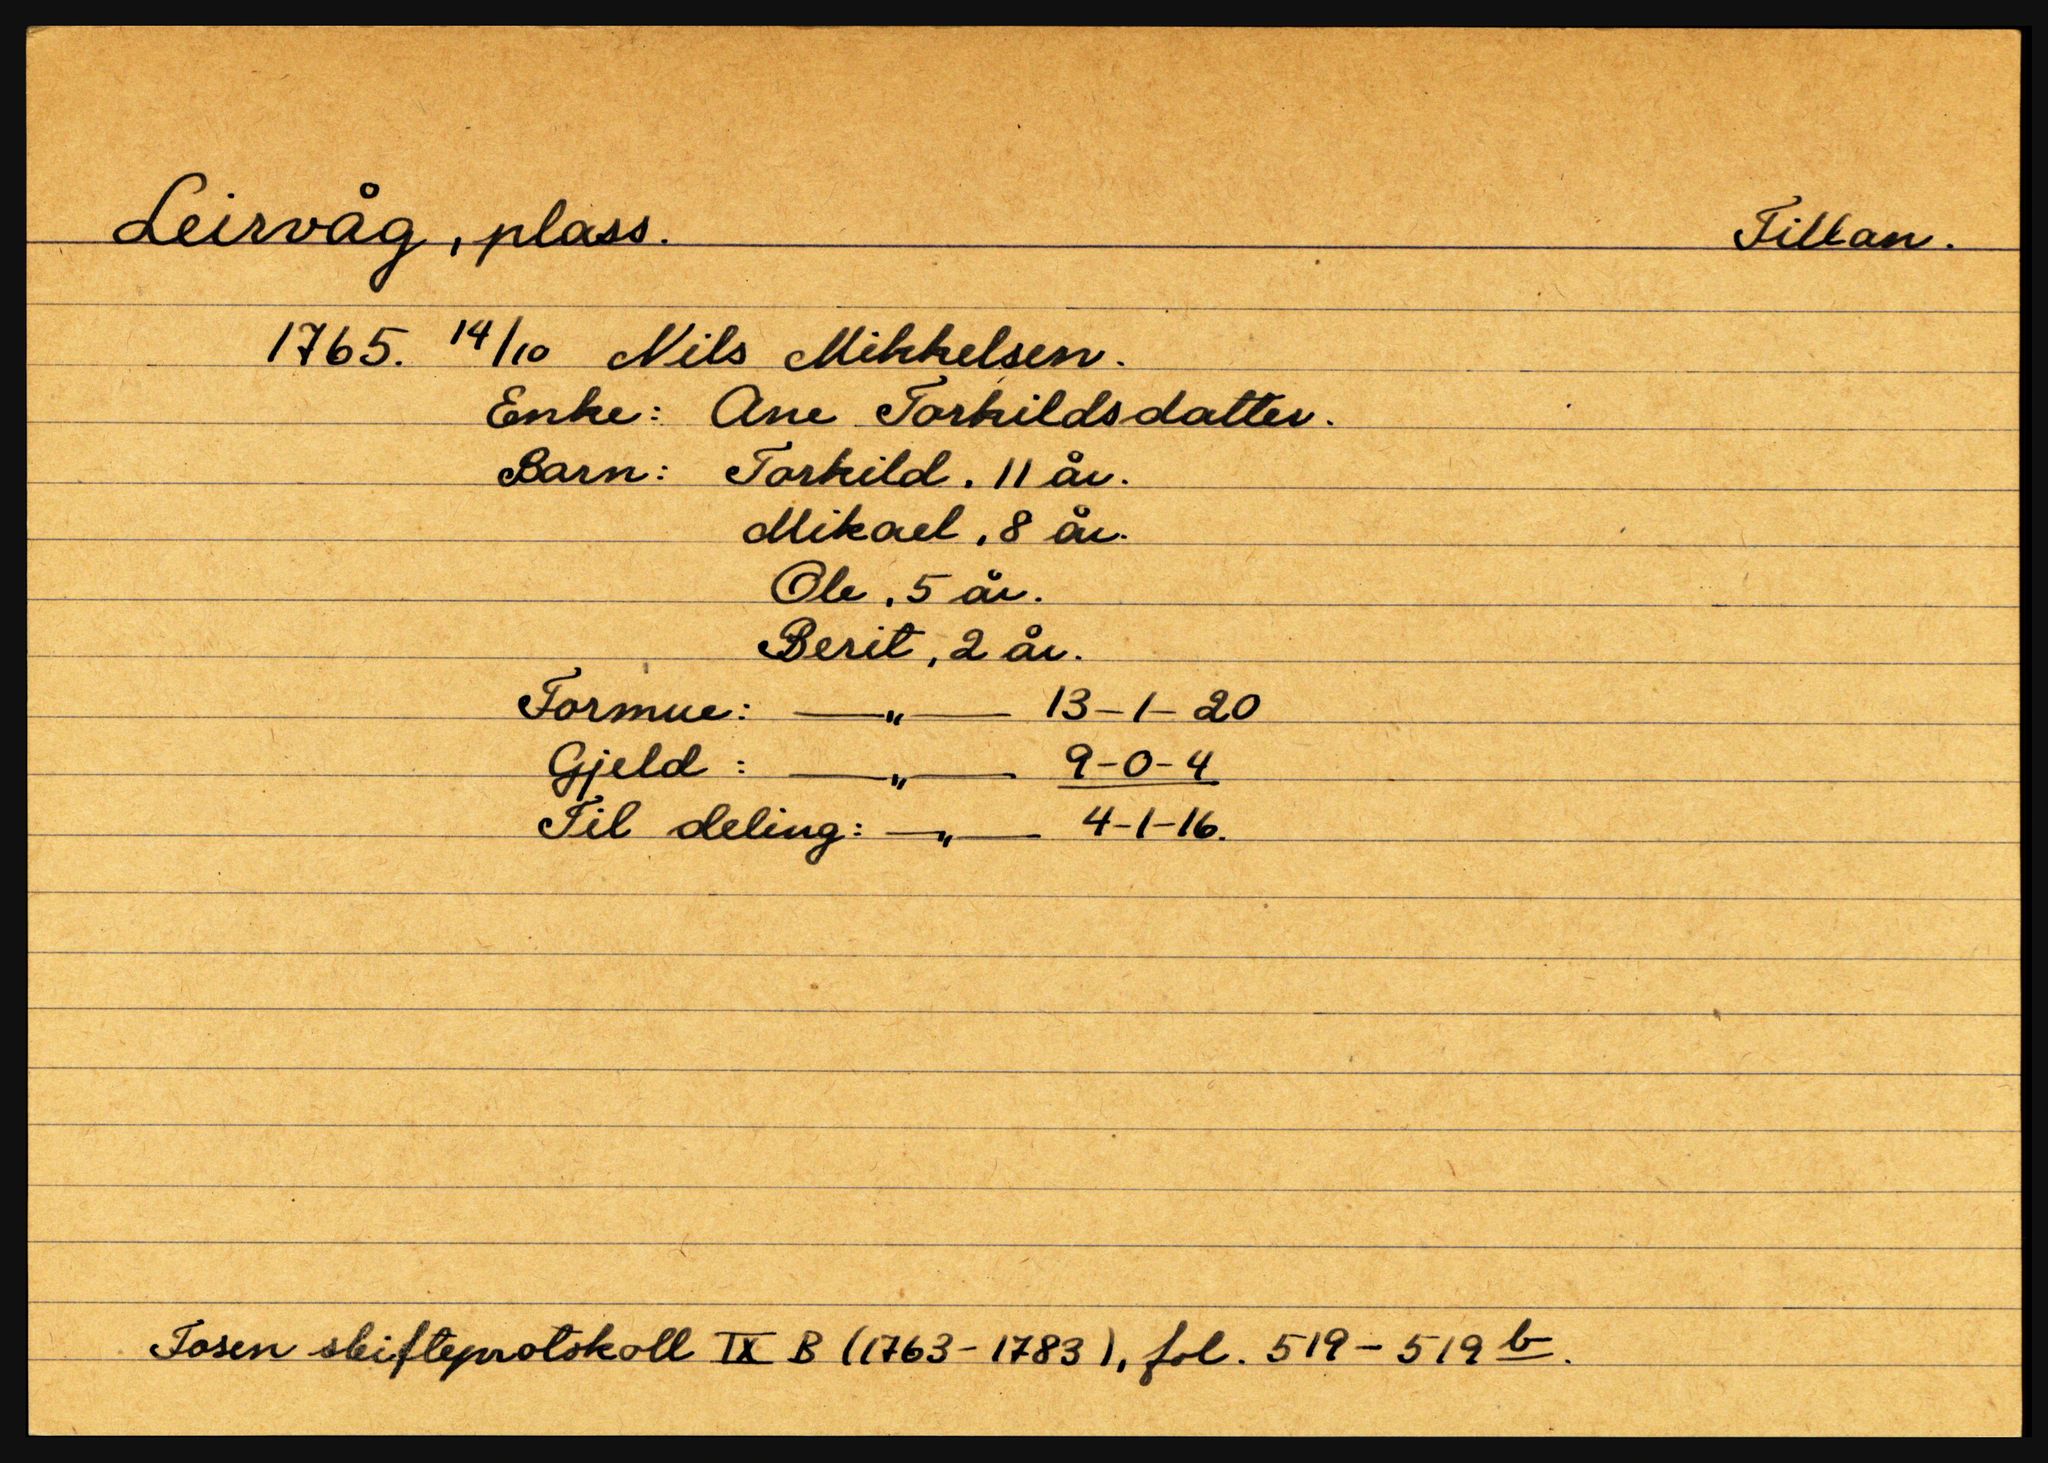 Leirvåg, plass. Fillan.
1765. 14/10 Nils Mikkelsen.
Enke: Ane Torkildsdatter.
Barn: Torkild, 11 år.
Mikael, 8 år.
Ole, 5 år.
Berit, 2 år.
Formue: —„— 13-1-20
Gjeld: —„— 9-0-4
Til deling: —„— 4-1-16.
Fosen skifteprotokoll IX B (1763-1783), fol. 519-519 b.